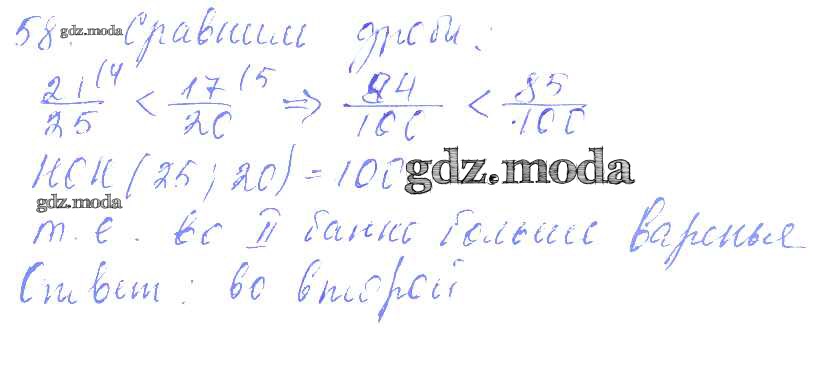 58. gdz.moda Сравним дроби:
21(4/25 < 17(5/20 => 84/100 < 85/100
НОК (25; 20) = 100 gdz.moda
gdz.moda
т.е. во II банке больше варенья
Ответ: во второй